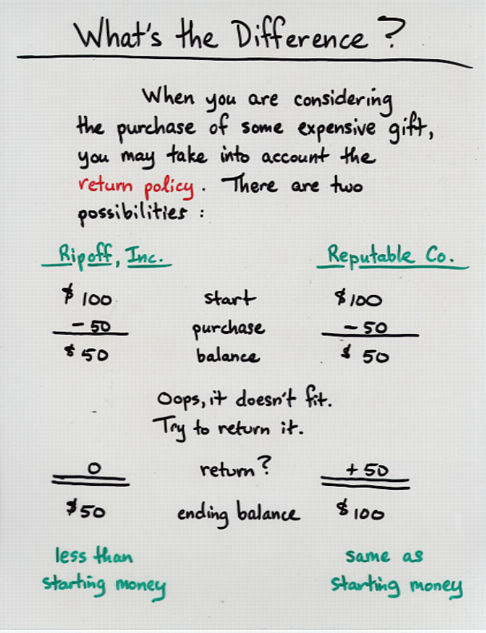 What's the Difference?
When you are considering
the purchase of some expensive gift,
you may take into account the
return policy. There are two
possibilities:
Ripoff, Inc. Reputable Co.
$100 start $100
-50 purchase -50
$50 balance $50
Oops, it doesn't fit.
Try to return it.
0 return? +50
$50 ending balance $100
less than same as
starting money starting money